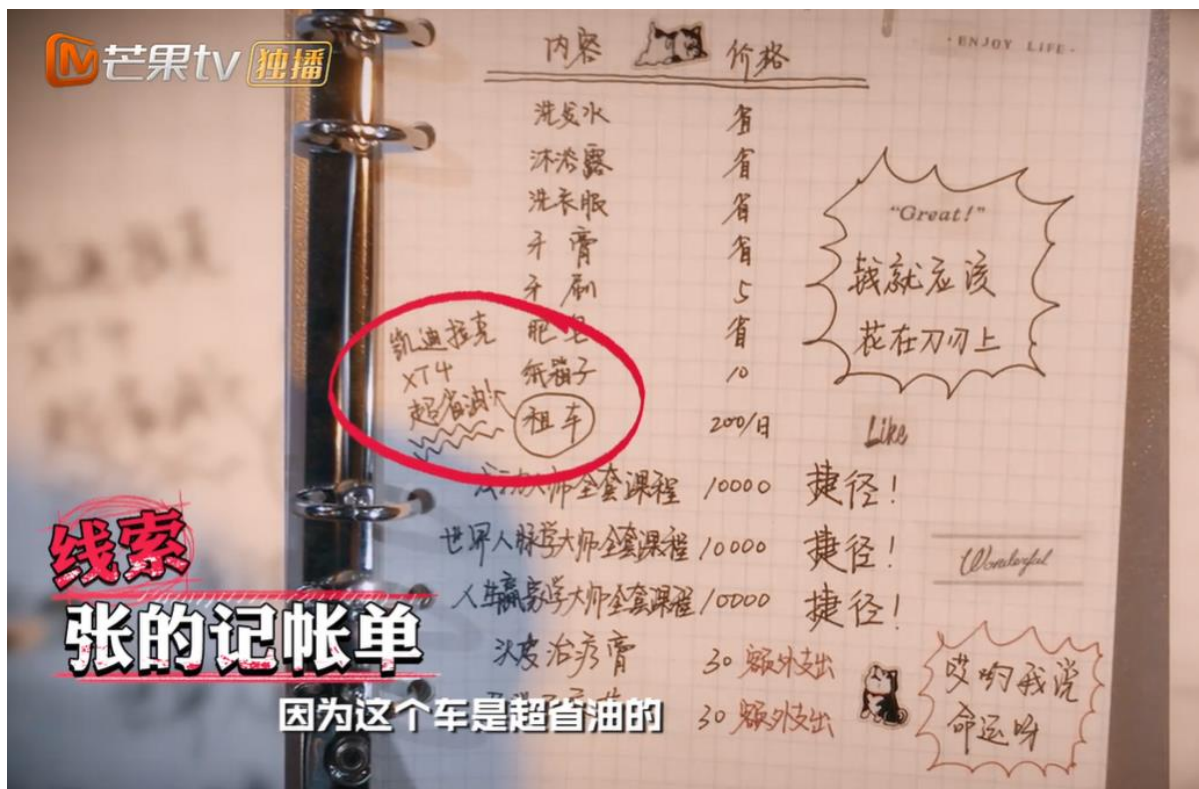 芒果tv 独播
内容 价格
· ENJOY LIFE ·
洗发水 省
沐浴露 省
洗衣服 省
牙膏 省
牙刷 5
肥皂 省
纸箱子 10
租车 200/日
凯迪拉克
XT4
超省油!
"Great!"
钱就应该
花在刀刃上
Like
成功大师全套课程 10000 捷径!
世界人脉学大师全套课程 10000 捷径!
人生赢家学大师全套课程 10000 捷径!
Wonderful
头皮治疗膏 30 额外支出
30 额外支出
哎哟我说
命运呀
线索
张的记帐单
因为这个车是超省油的